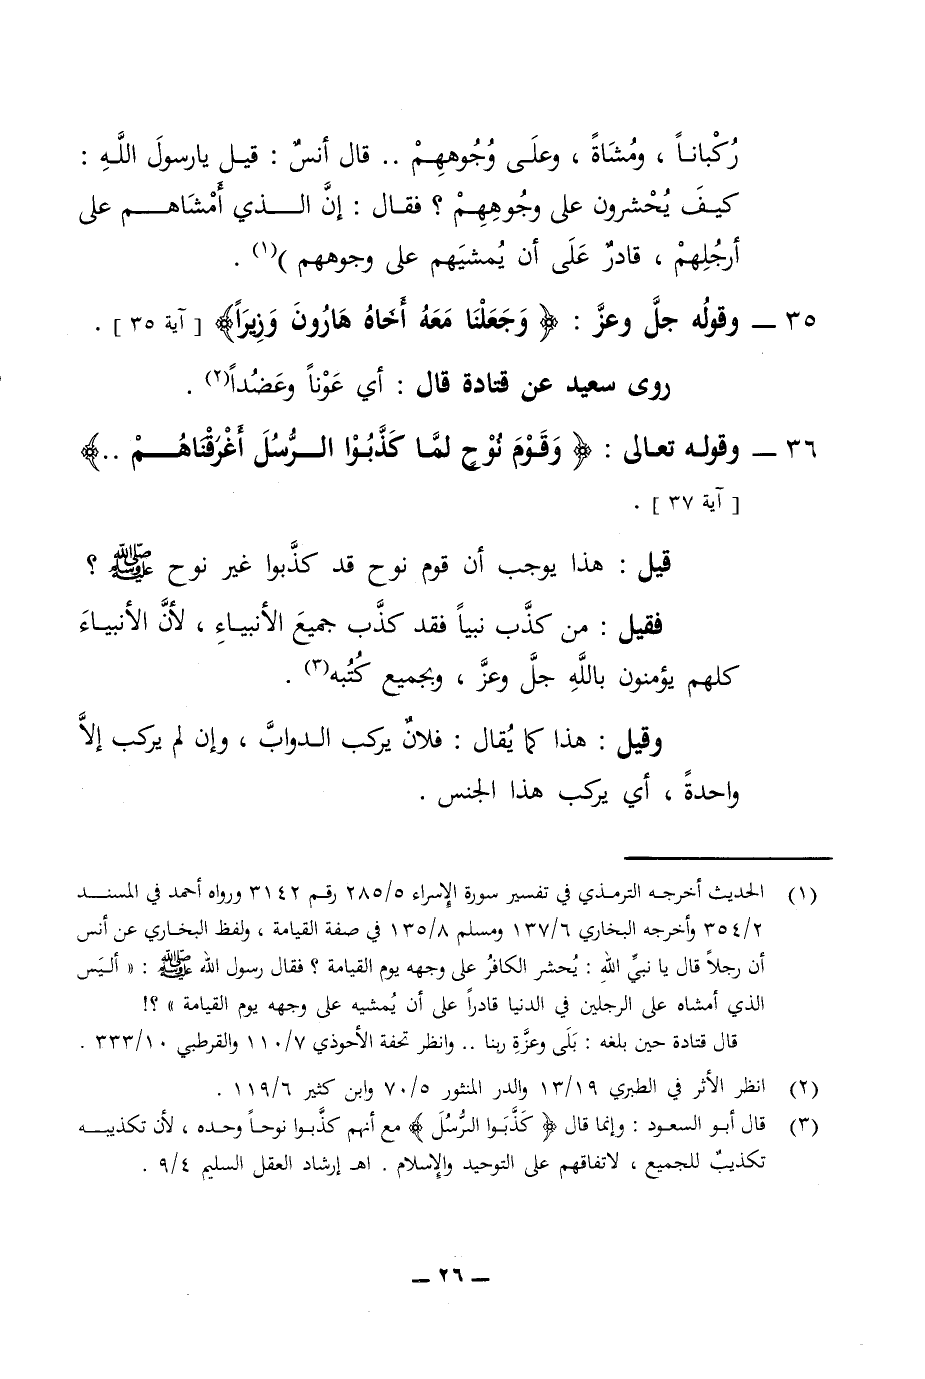 رُكْبانـاً ، ومُشَاةً ، وعلَـى وُجُوههِـمْ .. قال أنسٌ : قيـل يارسولَ اللَّـهِ :
كيـفَ يُحْشرون على وجُوهِهِـمْ ؟ فقـال : إنَّ الـذي أَمْشاهـم على
أرجُلِهمْ ، قادرٌ عَلَى أن يُمشيَهم على وجوههم )(١) .
٣٥ ــ وقولُه جلَّ وعزَّ : ﴿ وَجَعَلْنَا مَعَهُ أَخَاهُ هَارُونَ وَزِيرَاً﴾ [ آية ٣٥ ] .
روى سعيد عن قتادة قال : أي عَوْناً وعَضُداً(٢) .
٣٦ ــ وقولـه تعـالى : ﴿ وَقَـوْمَ نُوْحٍ لمَّـا كَذَّبُـوْا الـرُّسُلَ أَغْرَقْنَاهُـمْ ..﴾
[ آية ٣٧ ] .
قيل : هذا يوجب أن قوم نوح قد كذَّبوا غير نوح ﷺ ؟
فقيل : من كذَّب نبياً فقد كذَّب جميعَ الأنبيـاءِ ، لأنَّ الأنبيـاءَ
كلهم يؤمنون باللَّهِ جلَّ وعزَّ ، وبجميع كُتُبه(٣) .
وقيل : هذا كما يُقال : فلانٌ يركب الـدوابَّ ، وإن لم يركب إلاَّ
واحدةً ، أي يركب هذا الجنس .
(١) الحديث أخرجـه الترمـذي في تفسير سورة الإسراء ٢٨٥/٥ رقـم ٣١٤٢ ورواه أحمد في المسنـد
٣٥٤/٢ وأخرجه البخاري ١٣٧/٦ ومسلم ١٣٥/٨ في صفة القيامة ، ولفظ البخـاري عن أنس
أن رجلاً قال يا نبيَّ اللهِ : يُحشر الكافرُ على وجهه يوم القيامة ؟ فقال رسول الله ﷺ : « أليَس
الذي أمشاه على الرجلين في الدنيا قادراً على أن يُمشيه على وجهه يوم القيامة » ؟!
قال قتادة حين بلغه : بَلَى وعزَّةِ ربنا .. وانظر تحفة الأحوذي ١١٠/٧ والقرطبي ٣٣٣/١٠ .
(٢) انظر الأثر في الطبري ١٣/١٩ والدر المنثور ٧٠/٥ وابن كثير ١١٩/٦ .
(٣) قال أبـو السعـود : وإنما قال ﴿ كَذَّبَوا الرُّسُلَ ﴾ مع أنهم كذَّبـوا نوحـاً وحـده ، لأن تكذيبـه
تكذيبٌ للجميع ، لاتفاقهم على التوحيد والإسلام . اهـ إرشاد العقل السليم ٩/٤ .
ــ ٢٦ ــ